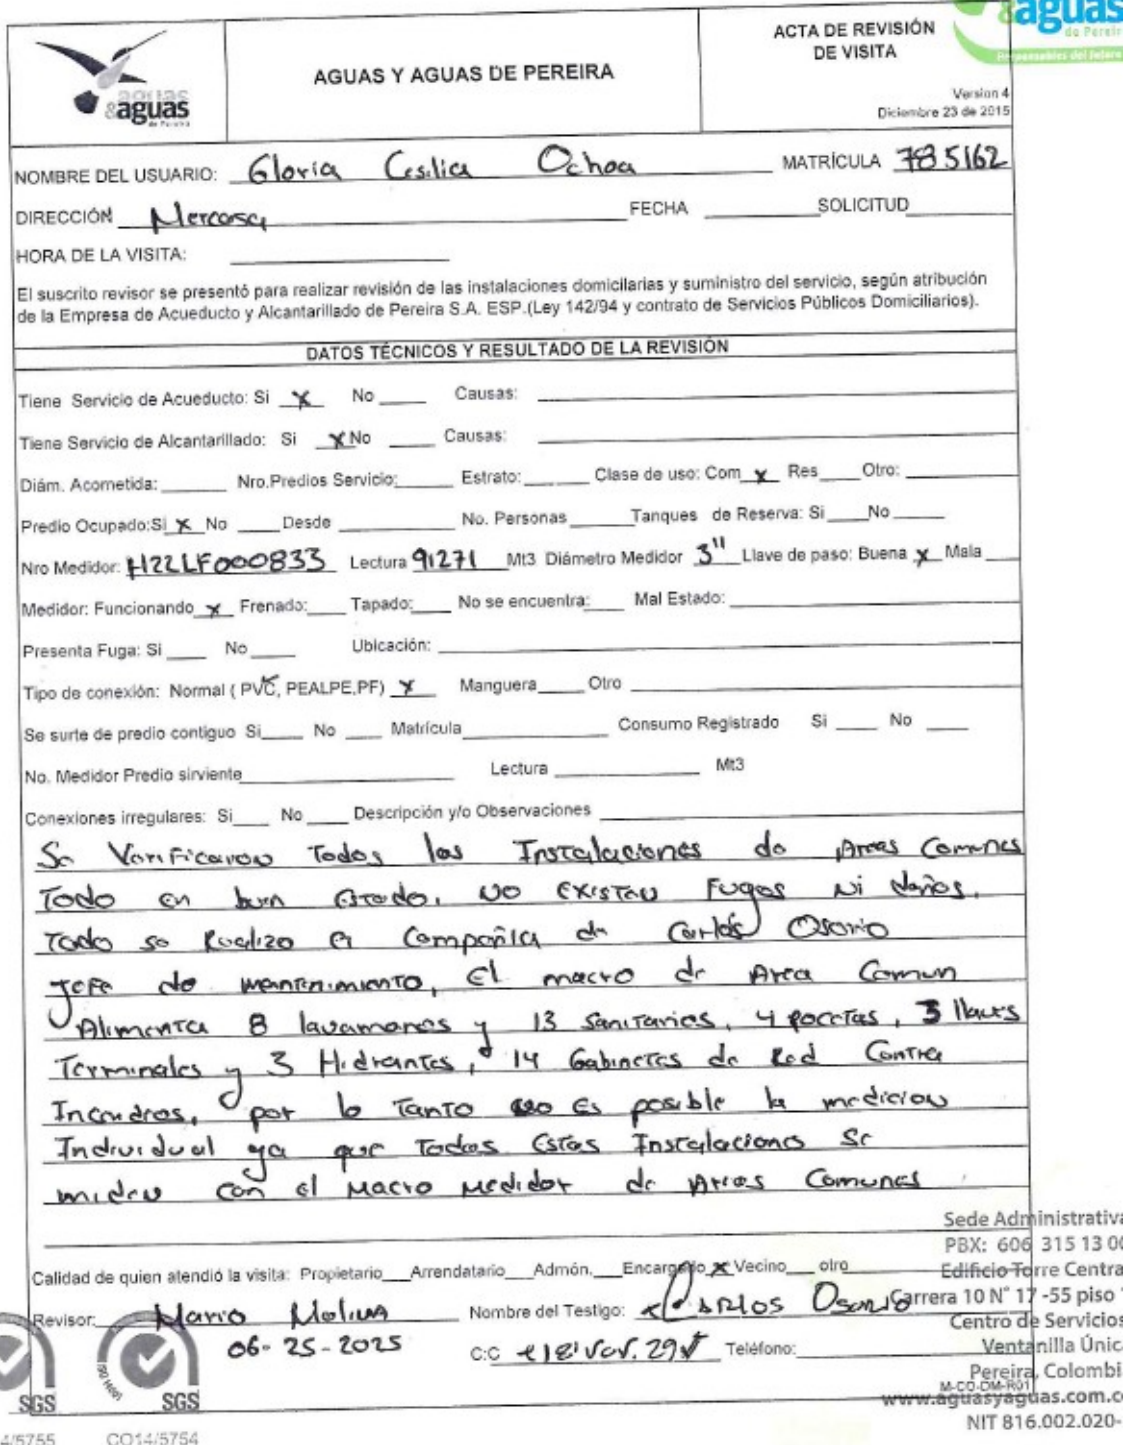 &aguas
de Pereira
Responsables del futuro
&aguas
de Pereira
AGUAS Y AGUAS DE PEREIRA
ACTA DE REVISIÓN
DE VISITA
Version 4
Diciembre 23 de 2015
NOMBRE DEL USUARIO: Gloria Cesilia Ochoa MATRÍCULA 785162
DIRECCIÓN Mercasa FECHA SOLICITUD
HORA DE LA VISITA:
El suscrito revisor se presentó para realizar revisión de las instalaciones domiciliarias y suministro del servicio, según atribución
de la Empresa de Acueducto y Alcantarillado de Pereira S.A. ESP.(Ley 142/94 y contrato de Servicios Públicos Domiciliarios).
DATOS TÉCNICOS Y RESULTADO DE LA REVISIÓN
Tiene Servicio de Acueducto: Si x No Causas:
Tiene Servicio de Alcantarillado: Si x No Causas:
Diám. Acometida: Nro.Predios Servicio: Estrato: Clase de uso: Com x Res Otro:
Predio Ocupado:Si x No Desde No. Personas Tanques de Reserva: Si No
Nro Medidor: H22LF000833 Lectura 91271 Mt3 Diámetro Medidor 3" Llave de paso: Buena x Mala
Medidor: Funcionando x Frenado: Tapado: No se encuentra: Mal Estado:
Presenta Fuga: Si No Ubicación:
Tipo de conexión: Normal ( PVC, PEALPE,PF) x Manguera Otro
Se surte de predio contiguo Si No Matrícula Consumo Registrado Si No
No. Medidor Predio sirviente Lectura Mt3
Conexiones irregulares: Si No Descripción y/o Observaciones
Se Verificaron Todos las Instalaciones de Areas Comunes
Todo en buen Estado. NO Existen Fugas Ni daños.
Todo se Realizo en Compañia de Carlos Osorio
Jefe de mantenimiento, El macro de Area Comun
Alimenta 8 lavamanos y 13 Sanitarios, 4 pocetas, 3 llaves
Terminales y 3 Hidrantes, 14 Gabinetes de Red Contra
Incendios, por lo Tanto no es posible la medicion
Individual ya que Todas Estas Instalaciones Se
miden con el Macro Medidor de Areas Comunes
Calidad de quien atendió la visita: Propietario Arrendatario Admón. Encargado x Vecino otro
Revisor: Mario Molina Nombre del Testigo: Carlos Osorio
06-25-2025 C:C Teléfono:
M-CO-DM-R01
Sede Administrativa
PBX: 606 315 13 00
Edificio Torre Central
Carrera 10 N° 17 -55 piso
Centro de Servicios
Ventanilla Única
Pereira, Colombia
www.aguasyaguas.com.co
NIT 816.002.020-
ISO 14001
SGS
SGS
4/5755
CO14/5754